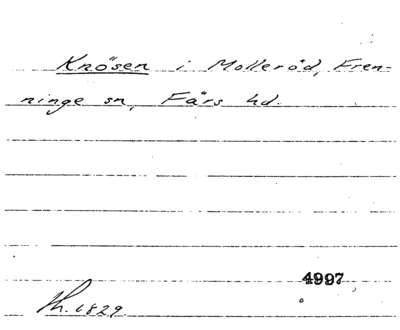 Knösen i Molleröd, Fren-
ninge sn, Färs hd.
4997
Th. 1829